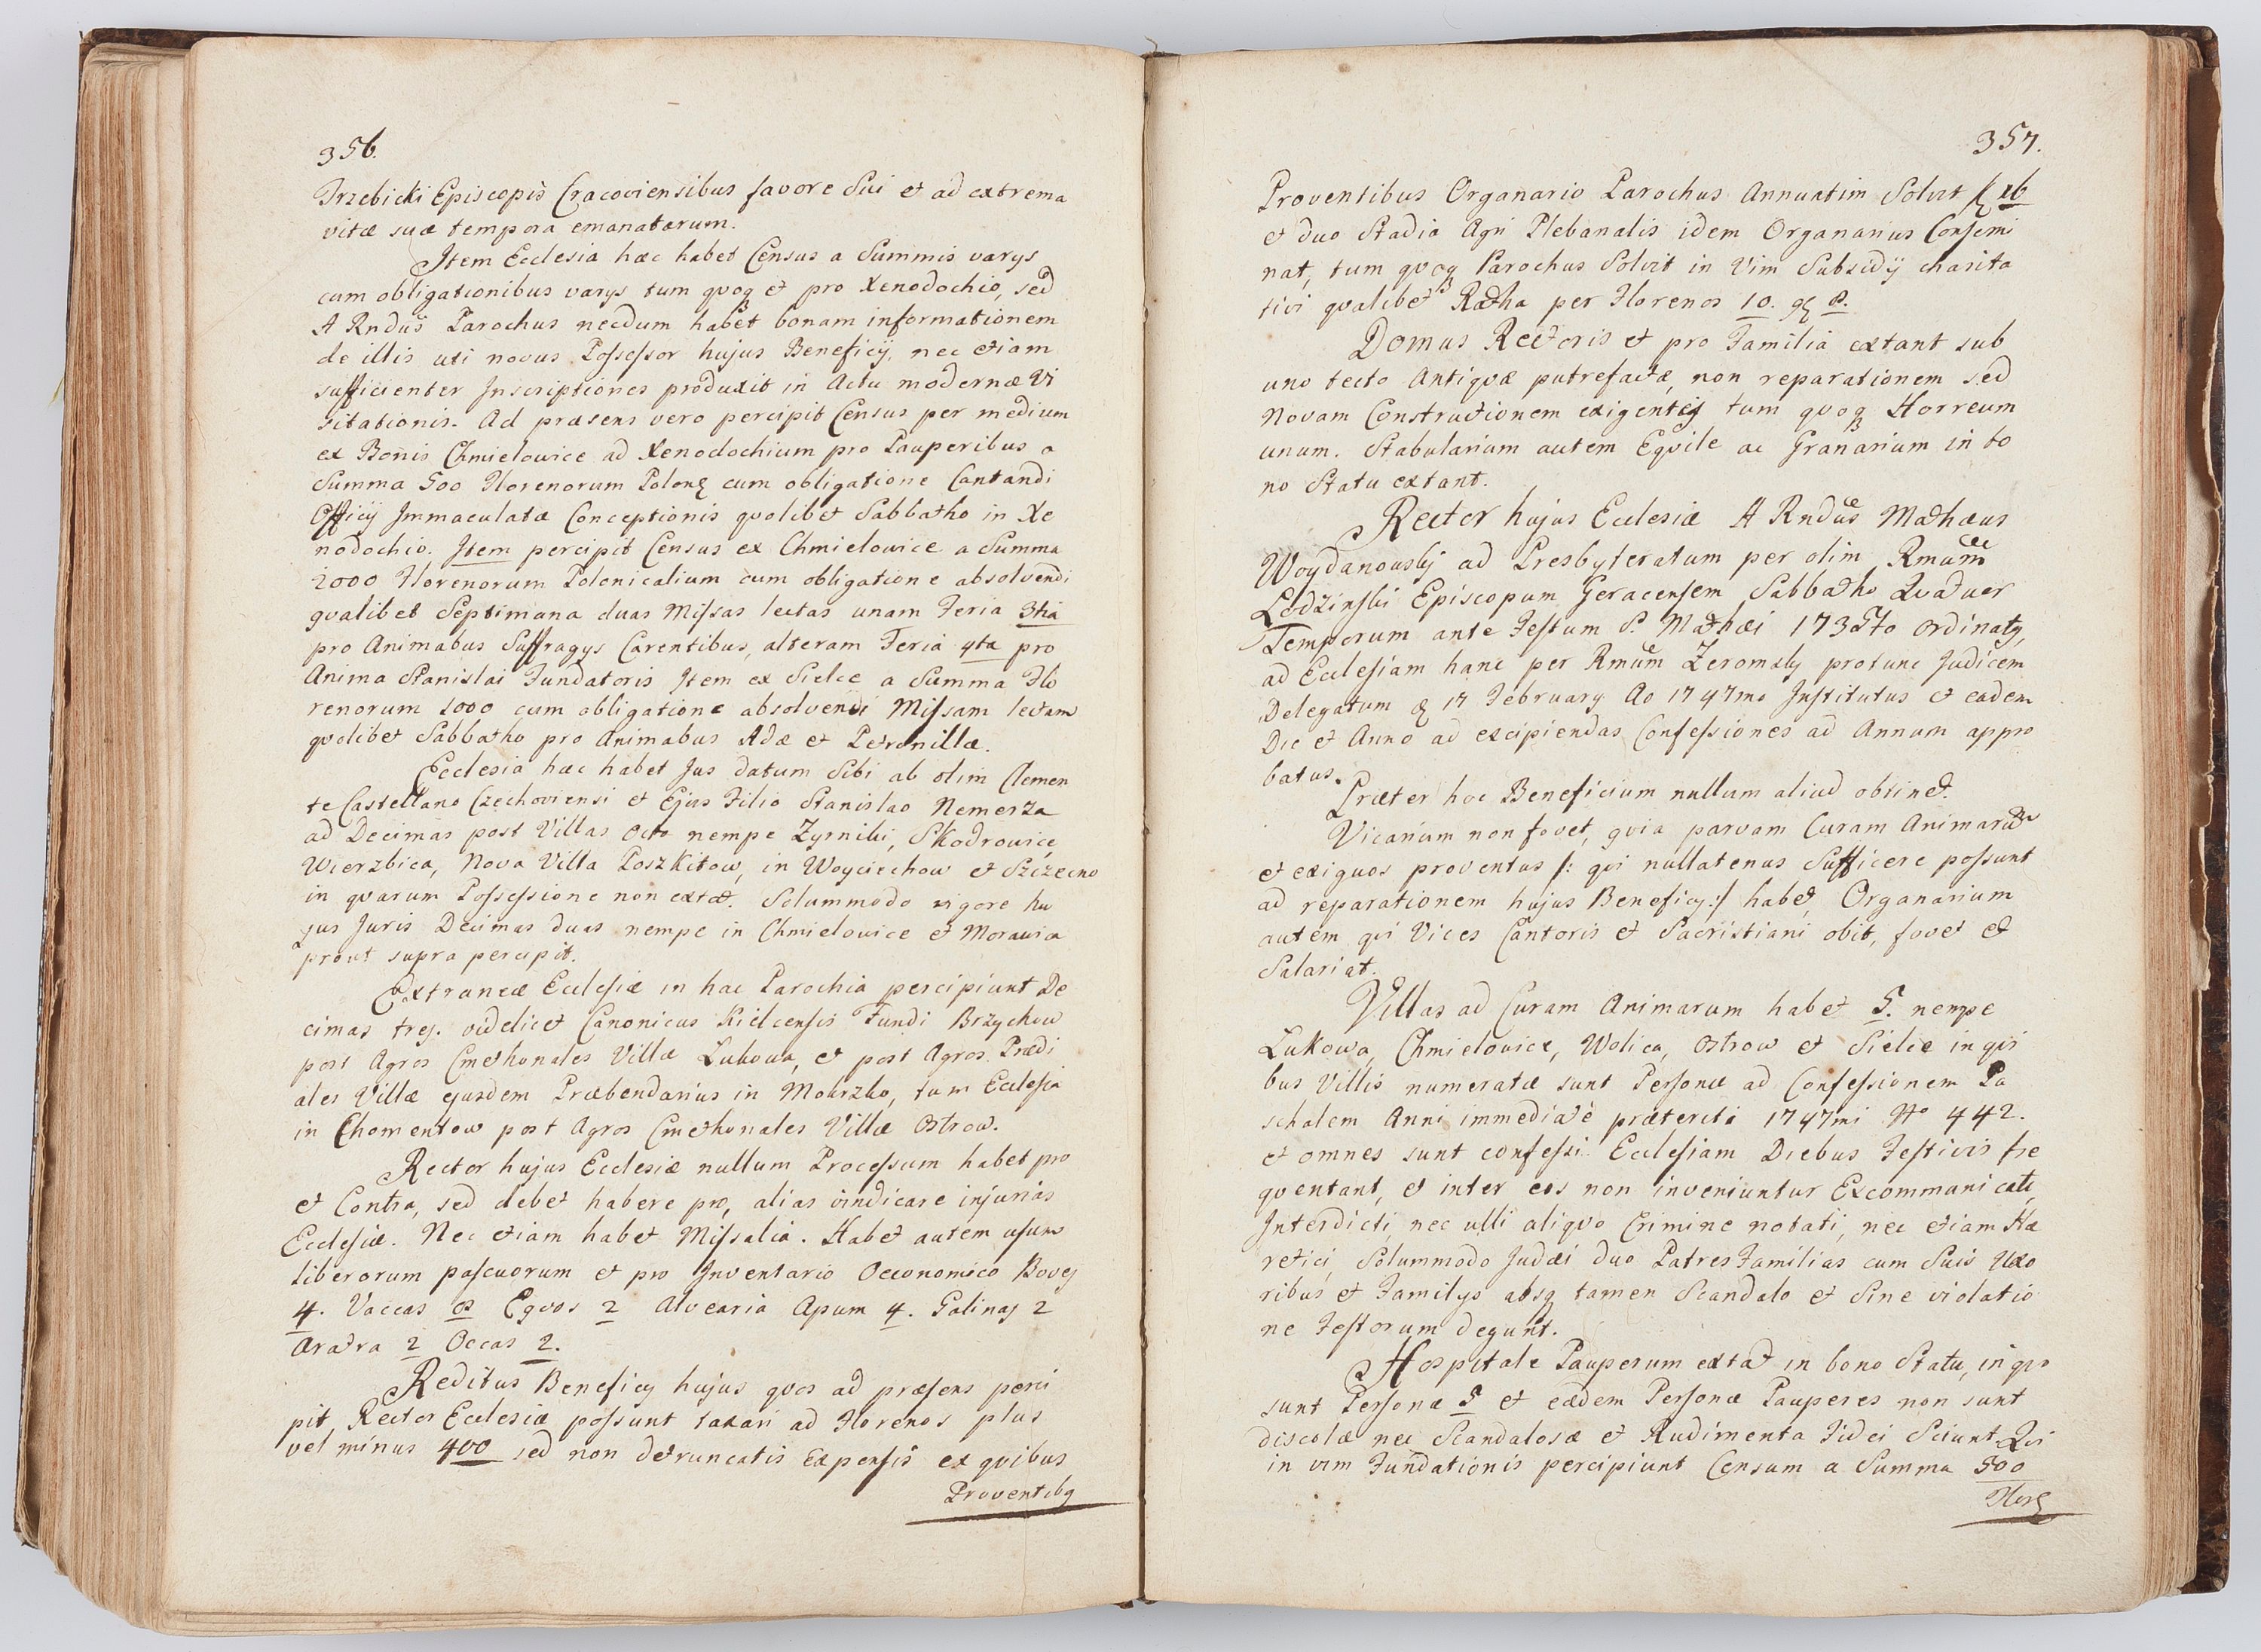 356.
Trzebicki Episcopis Cracoviensibus favore Sui et ad extrema
vitæ suæ tempora emanatarum.
Item Ecclesia hæc habet Census a Summis varys
cum obligationibus varys tum qvoq et pro Xenodochio, sed
A Rndus Parochus necdum habet bonam informationem
de illis uti novus Possessor hujus Beneficij, nec etiam
sufficienter Inscriptiones produxit in Actu modernæ Vi
sitationis. Ad præsens vero percipit Census per medium
ex Bonis Chmielowice ad Xenodochium pro Pauperibus a
Summa 500 Florenorum Polon cum obligatione Cantandi
Officij Immaculatæ Conceptionis qvolibet Sabbatho in Xe
nodochio. Item percipit Census ex Chmielowice a Summa
2000 Florenorum Polonicalium cum obligatione absolvendi
qvalibet Septimana duas Missas lectas unam Feria 3tia
pro Animabus Suffragys Carentibus, alteram Feria 4ta pro
Anima Stanislai Fundatoris Item ex Sielce a Summa Flo
renorum 1000 cum obligatione absolvendi Missam lectam
qvolibet Sabbatho pro Animabus Adæ et Petronillæ.
Ecclesia hæc habet Jus datum Sibi ab olim Clemen
te Castellano Czechoviensi et Ejus Filio Stanislao Nemerza
ad Decimas post Villas Octo nempe Zyrniki, Skodrowice
Wierzbica, Nova Villa Poszkitow, in Woyciechow et Szczecno
in qvarum Possessione non extat. Solummodo vigore hu
jus Juris Decimas duas nempe in Chmielowice et Morawia
prout supra percipit.
Extraneæ Ecclesiæ in hac Parochia percipiunt De
cimas tres. videlicet Canonicus Kielcensis Fundi Brzychow
post Agros Cmethonales Villæ Lukowa, et post Agros Prædi
ales Villæ ejusdem Præbendarius in Mokrzko, tum Ecclesia
in Chomentow post Agros Cmethonales Villæ Ostrow.
Rector hujus Ecclesiæ nullum Processum habet pro
et Contra, sed debet habere pro, alias vindicare injurias
Ecclesiæ. Nec etiam habet Missalia. Habet autem usum
liberorum pascuorum et pro Inventario Oeconomico Boves
4. Vaccas 8 Eqvos 2 Alvearia Apum 4. Galinas 2
Aratra 2 Occas 2.
Reditus Beneficy hujus qvos ad præsens perci
pit Rector Ecclesiæ possunt taxari ad Florenos plus
vel minus 400 sed non detruncatis Expensis ex qvibus
Proventibq
357.
Proventibus Organario Parochus Annuatim Solvit f 16
et duo Stadia Agri Plebanalis idem Organarius Consemi
nat, tum qvoq Parochus Solvit in Vim Subsidij charita
tivi qvalibet Ratha per Florenos 10. g 8.
Domus Rectoris et pro Familia extant sub
uno tecto Antiqvæ putrefactæ, non reparationem sed
Novam Constructionem exigentes tum qvoq Horreum
unum. Stabularium autem Eqvile ac Granarium in bo
no Statu extant.
Rector hujus Ecclesiæ A Rndus Mathæus
Woydanowsky ad Presbyteratum per olim Rmum
Lodzinski Episcopum Geracensem Sabbatho Qvatuor
Temporum ante Festum S. Mathæi 1735to Ordinatq,
ad Ecclesiam hanc per Rmum Zeromsky protunc Judicem
Delegatum d 17 February Ao 1747mo Institutus et eadem
Die et Anno ad excipiendas Confessiones ad Annum appro
batus.
Præter hoc Beneficium nullum aliud obtinet.
Vicarium non fovet, qvia parvam Curam Animarum
et exiguos proventus /: qvi nullatenus Sufficere possunt
ad reparationem hujus Beneficy :/ habet, Organarium
autem qvi Vices Cantoris et Sacristiani obit, fovet et
Salariat.
Villas ad Curam Animarum habet 5. nempe
Lukowa, Chmielowice, Wolica, Ostrow et Sielce in qvi
bus Villis numeratæ sunt Personæ ad Confessionem Pa
schalem Anni immediatè præteriti 1747mi No 442.
et omnes sunt confessi. Ecclesiam Diebus Festivis fre
qventant, et inter eos non inveniuntur Excommunicati,
Interdicti, nec ulli aliqvo Crimine notati, nec etiam Hæ
retici, Solummodo Judæi duo Patres Familias cum Suis Uxo
ribus et Familys absq tamen Scandalo et Sine violatio
ne Festorum degunt.
Hospitale Pauperum extat in bono Statu, in qvo
sunt Personæ 5 et eædem Personæ Pauperes non sunt
discolæ nec Scandalosæ et Rudimenta Fidei Sciunt Qvi
in vim Fundationis percipiunt Censum a Summa 500
Flor